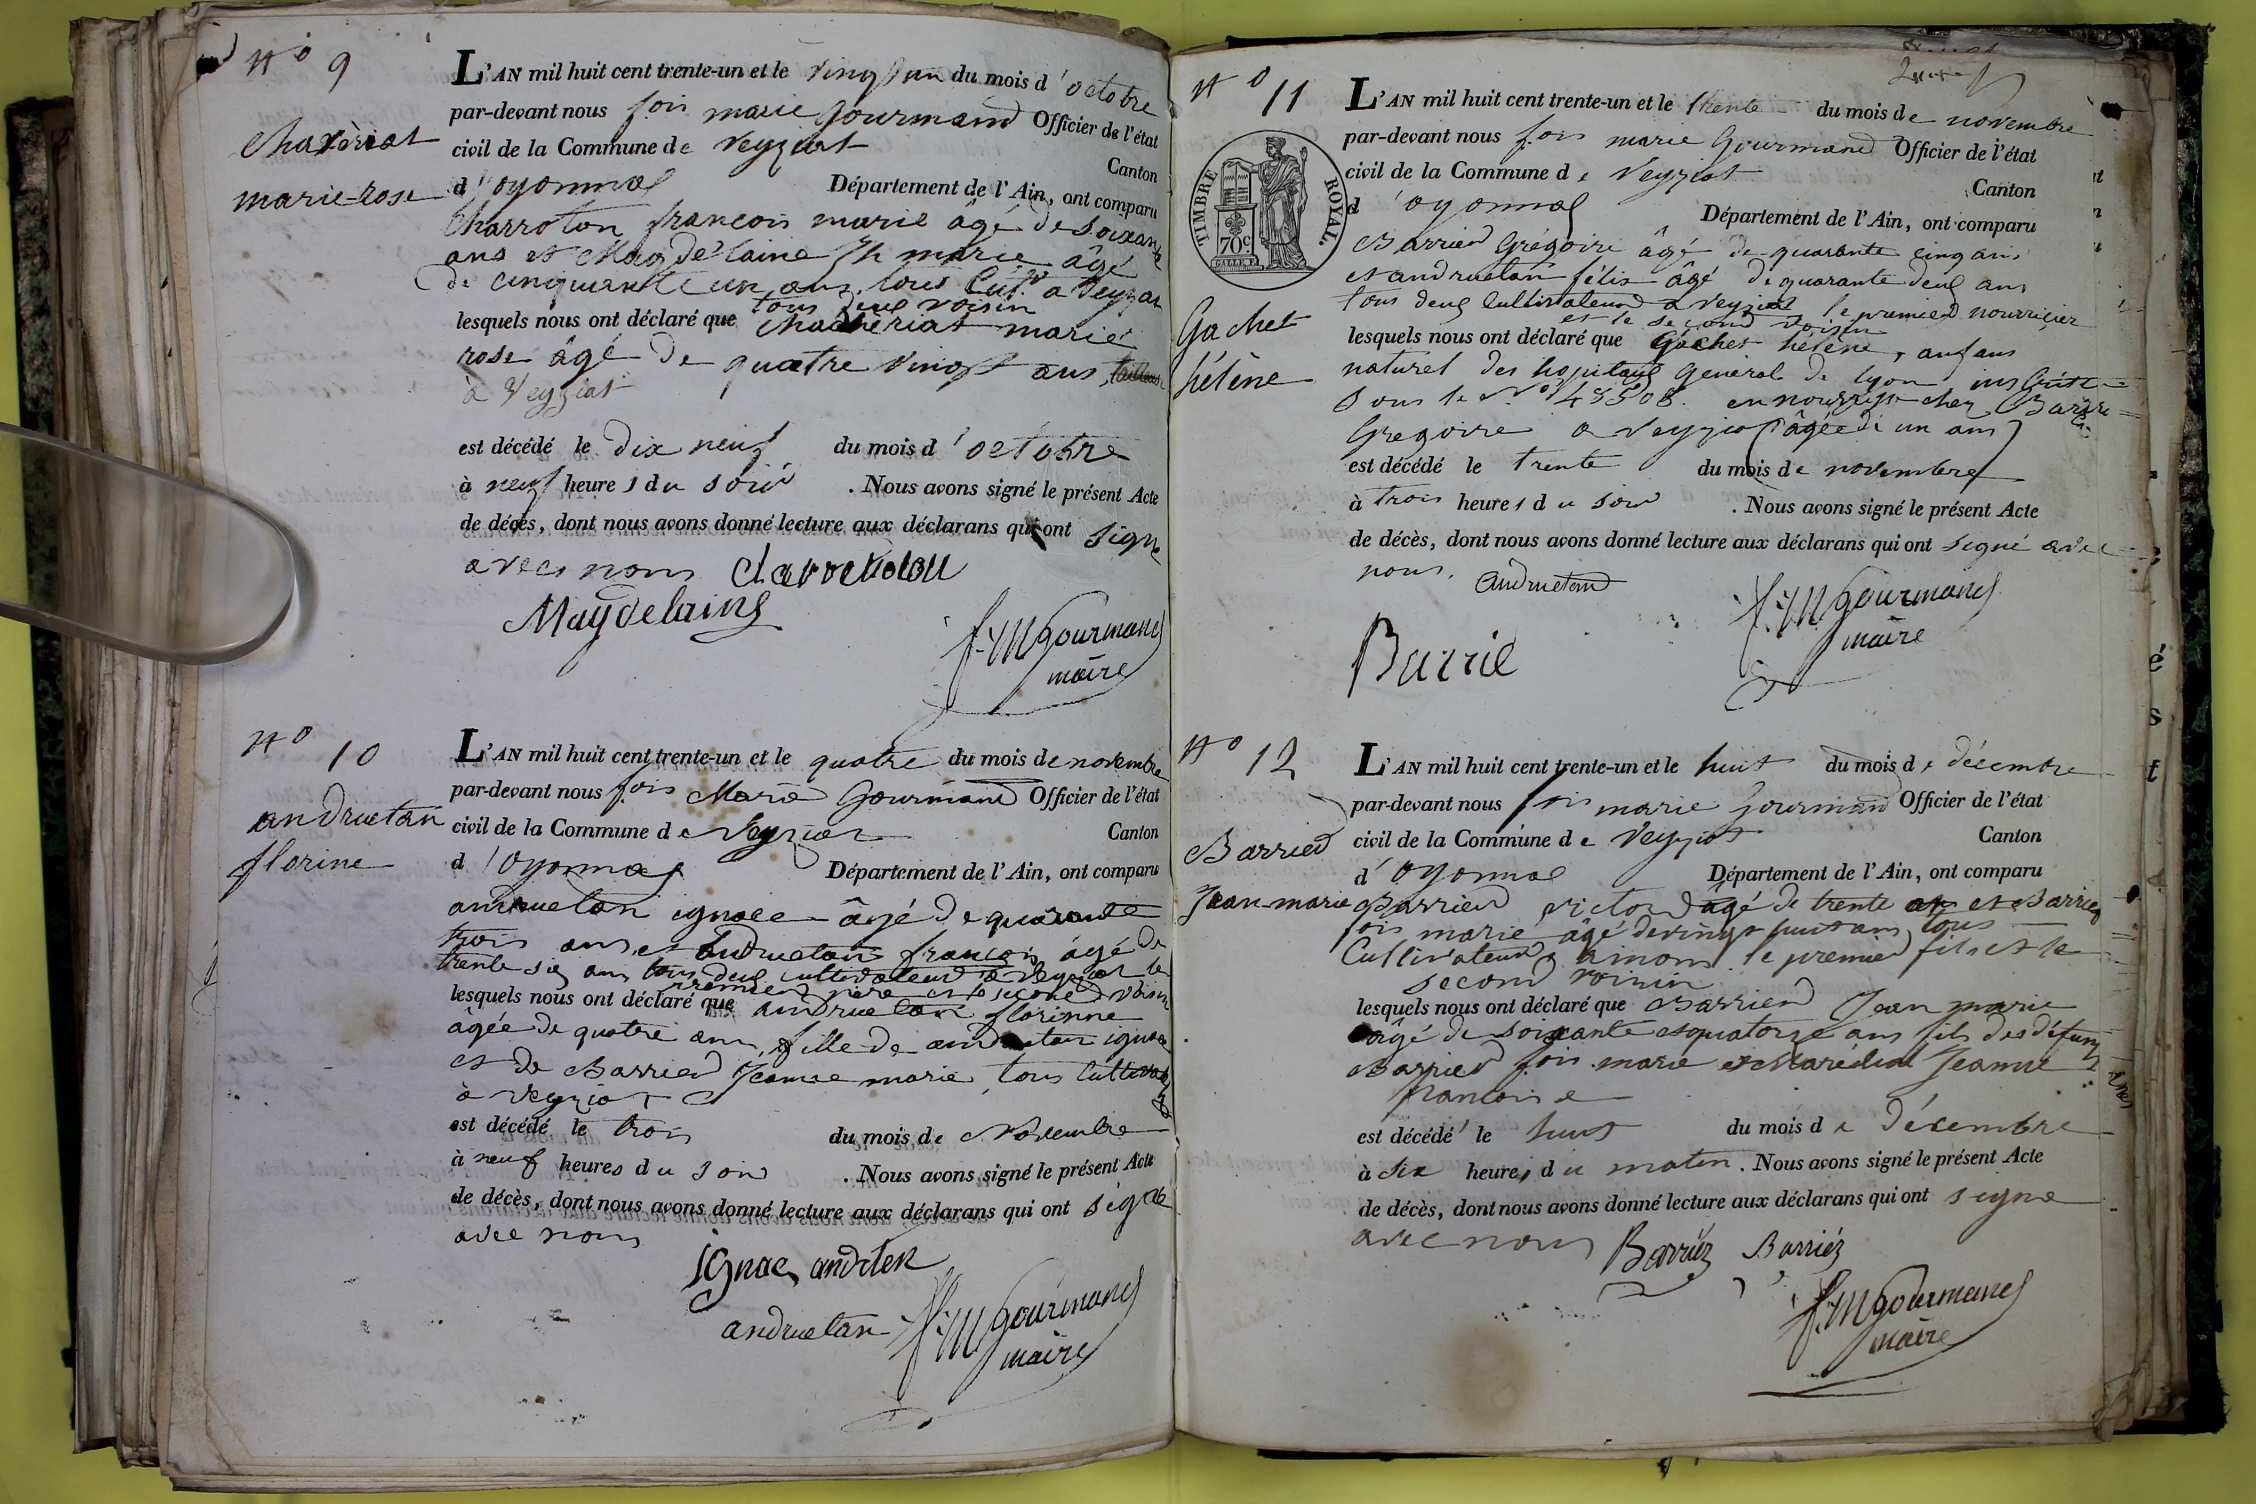 N° 9
Chavériat
marie-rose
L'AN mil huit cent trente-un et le vingt un du mois d'octobre
par-devant nous fois marie Gourmand Officier de l'état
civil de la Commune de Veyziat
Canton
d'oyonnax Département de l'Ain, ont comparu
Charroton francois marie âgé de soixante
ans et Magdelaine Jh marie âgé
de cinquante un ans, tous Cult.rs a Veyziat
tous deux voisin
lesquels nous ont déclaré que Chavériat marie
rose âgé de quatre vingt ans,
à Veyziat
est décédé le dix neuf du mois d'octobre
à neuf heures du soir. Nous avons signé le présent Acte
de décès, dont nous avons donné lecture aux déclarans qui ont signé
avec nous
Magdelaine
f. M Gourmand
maire
N° 10
andruetan
florine
L'AN mil huit cent trente-un et le quatre du mois de novembre
par-devant nous fois Marie Gourmand Officier de l'état
civil de la Commune de Veyziat
Canton
d'oyonnax Département de l'Ain, ont comparu
andruetan ignace âgé de quarante
trois ans et andruetan francois âgé de
trente six ans tous deux cultivateurs à Veyziat le
premier père et le second voisin
lesquels nous ont déclaré que andruetan florinne
âgée de quatre ans, fille de andruetan ignace
et de Barrier Jeanne marie, tous Cultivateurs
à Veyziat
est décédé le trois du mois de Novembre
à neuf heures du soir. Nous avons signé le présent Acte
de décès, dont nous avons donné lecture aux déclarans qui ont signé
avec nous
andruetan
f. M Gourmand
maire
N° 11
TIMBRE ROYAL.
70c.
Gachet
hélène
L'AN mil huit cent trente-un et le trente du mois de novembre
par-devant nous fois marie Gourmand Officier de l'état
civil de la Commune de Veyziat
Canton
d'oyonnax Département de l'Ain, ont comparu
Barrier Grégoire âgé de quarante cinq ans
et andruetan félix âgé de quarante deux ans
tous deux Cultivateurs a Veyziat le premier nourricier
et le second voisin
lesquels nous ont déclaré que Gachet helene, anfans
naturel des hopitaux general de lyon inscritte
sous le N° en nourrisse chez Barrier
Gregoire a Veyziat (âgée de un ans)
est décédé le trente du mois de novembre
à trois heures du soir. Nous avons signé le présent Acte
de décès, dont nous avons donné lecture aux déclarans qui ont signé avec
nous.
andruetan
f. M Gourmand
maire
N° 12
Barrier
Jean-marie
L'AN mil huit cent trente-un et le huit du mois de décembre
par-devant nous fois marie Gourmand Officier de l'état
civil de la Commune de Veyziat
Canton
d'oyonnax Département de l'Ain, ont comparu
Barrier victor âgé de trente ans et Barrier
fois marie âgé de vingt huit ans, tous
Cultivateurs le premier fils et le
second voisin
lesquels nous ont déclaré que Barrier Jean marie
âgé de soixante et quatorze ans fils des défunts
Barrier fois marie et Jeanne
francoise
est décédé le huit du mois de décembre
à six heures du matin. Nous avons signé le présent Acte
de décès, dont nous avons donné lecture aux déclarans qui ont signé
avec nous
Barriéz Barriéz
f. M Gourmand
maire